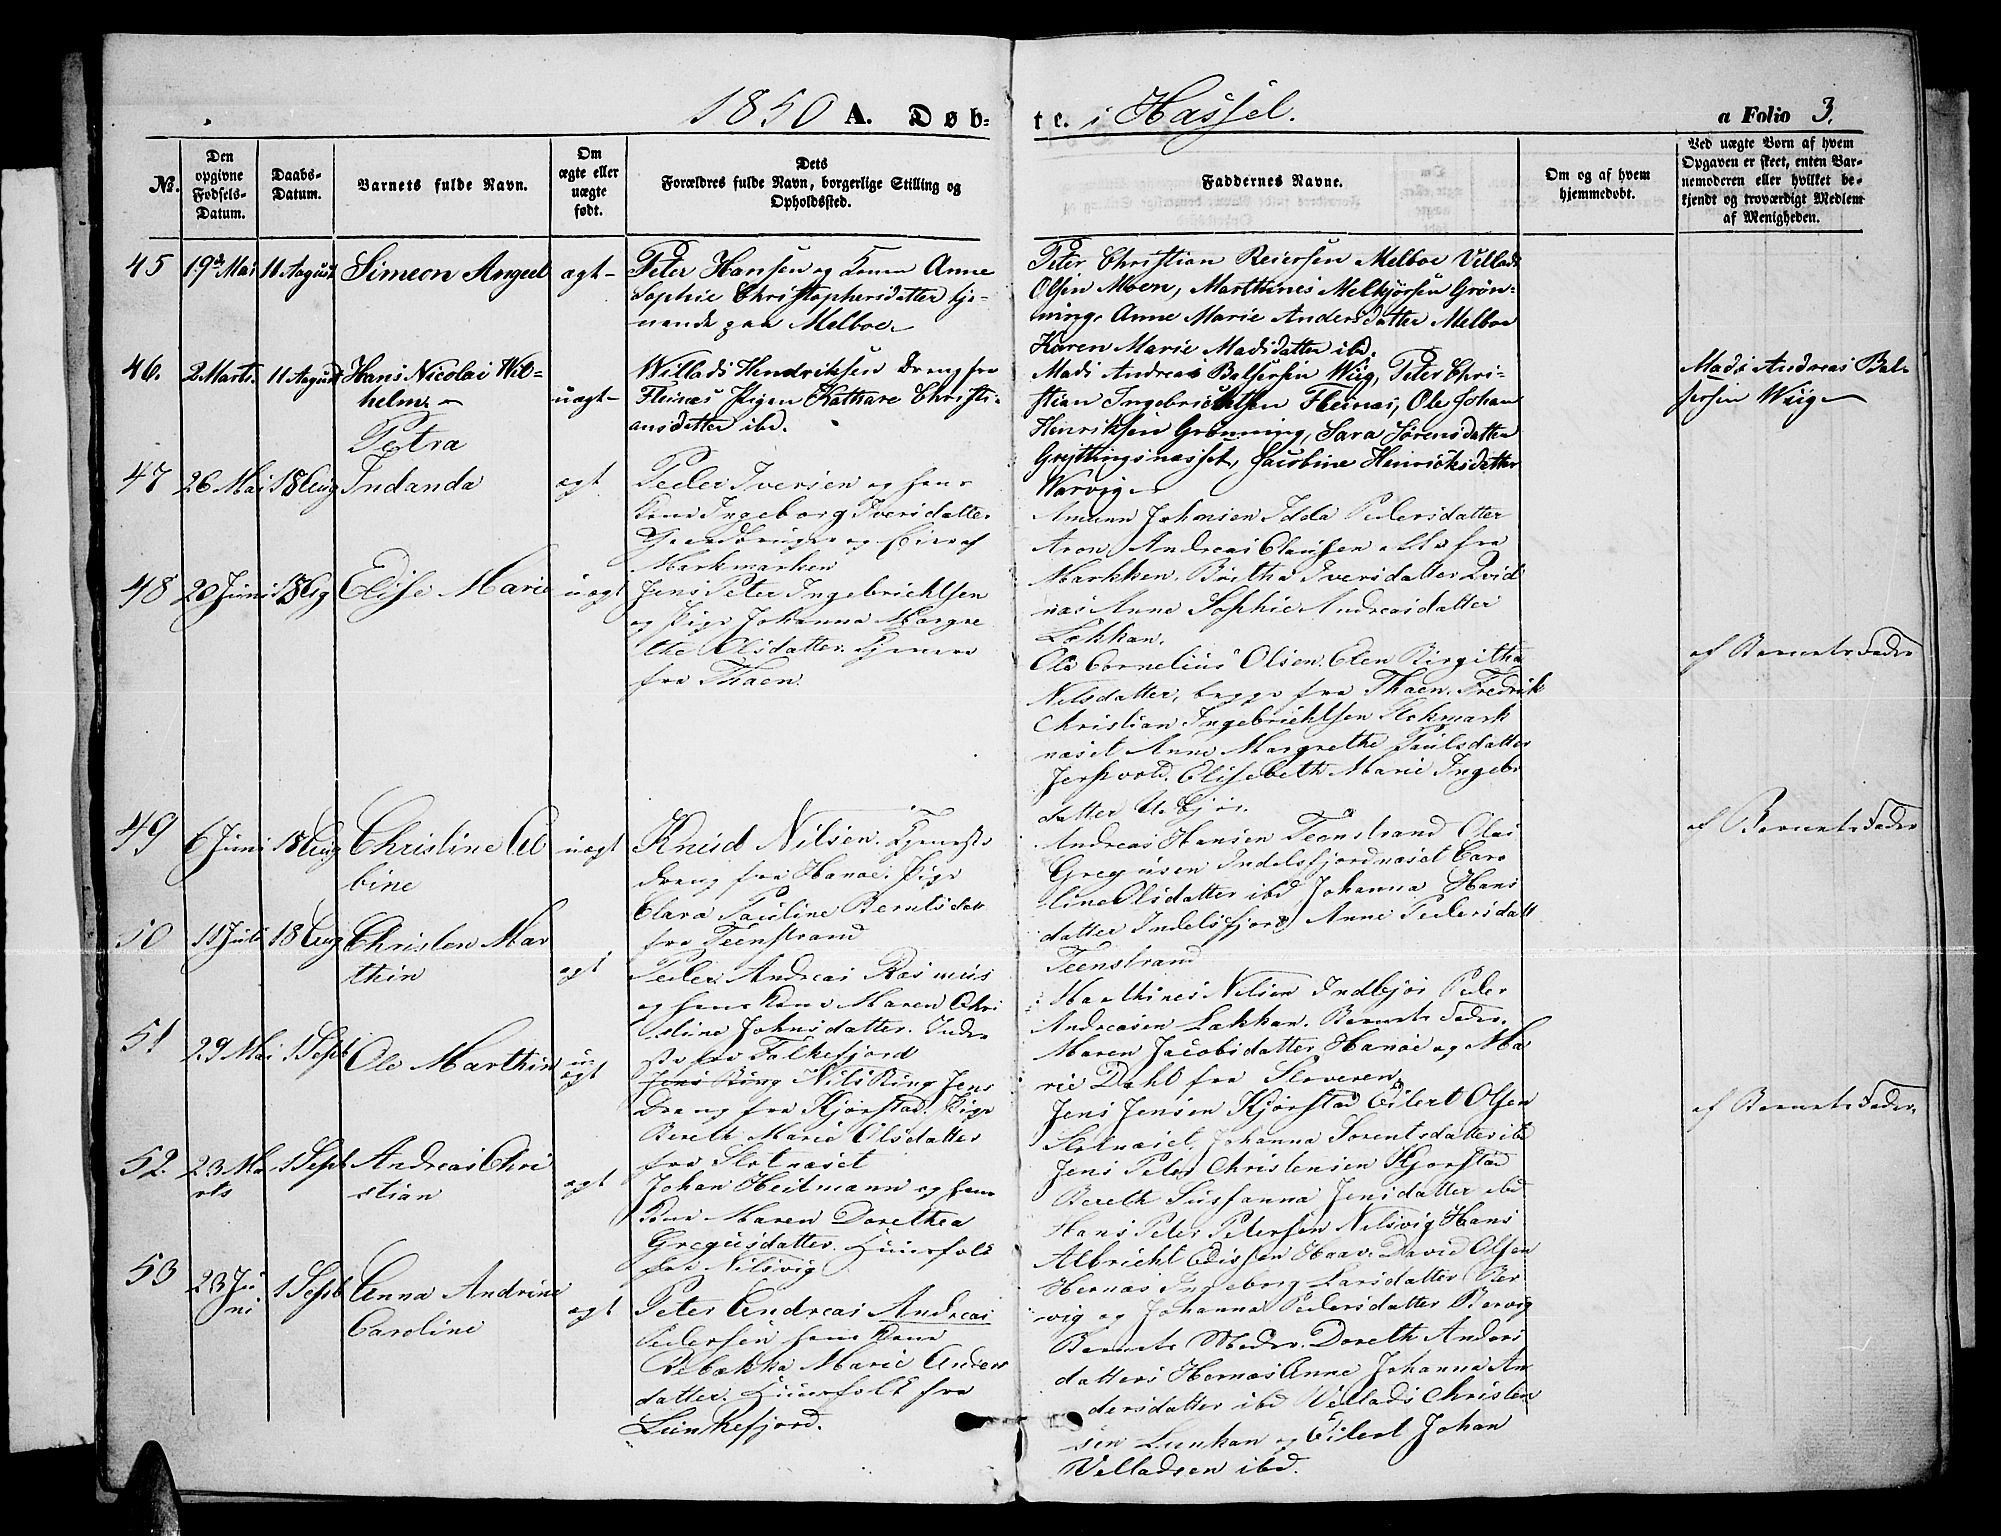 1850 A. Døb-
te. i Hassel.
a Folio 3.
No.
Den opgivne Fødsels-Datum.
Daabs-Datum.
Barnets fulde Navn.
Om ægte eller uægte født.
Dets
Forældres fulde Navn, borgerlige Stilling og
Opholdssted.
Faddernes Navne.
Om og af hvem
hjemmedøbt.
Ved uægte Børn af hvem
Opgaven er skeet, enten Bar-
nemoderen eller hvilket be-
kjendt og troværdigt Medlem
af Menigheden.
45 19de Mai 11 August Simeon Angel ægt-
Peter Hansen og Konen Anne
Sophie Christophersdatter tje-
nende paa Melboe
Peter Christian Reiersen Melboe Villads
Olsen Moen, Marthines Melkjørsen Grøn-
ning, Anne Marie Andersdatter Melboe
Karen Marie Madsdatter ibd.
46. 2 Marts. 11 August Hans Nicolai Wil-
helm
uægt-
Willads Hendriksen Dreng fra
Fleinæs Pigen Kathare Christi-
ansdatter ibd.
Mads Andreas Balsersen Wiig, Peter Chri-
stian Ingebrichtsen Fleinæs, Ole Johan
Henriksen Grønning, Sara Sørensdatter
Grejttingsnæsset, Jacobine Henricksdatter
Warvig
Mads Andreas Bal-
sersen Wiig
47 26 Mai 18 Aug Petra
Indanda
ægt
Peder Iversen og hans
Kone Ingeborg Iversdatter
Gaardbruger og Eier af
Markmarken
Amunn Johnsen Idda Pedersdatter
Aron Andreas Clausen alle fra
Markken. Britha Iversdatter Qvid
næs Anne Sophie Andreasdatter
Lækkan.
48 20 Juni 18 Aug Elise Marie uægt
Jens Peter Ingebrichtsen
og Pige Johanna Margre
the Olsdatter.
fra Thaen.
Ole Cornelius Olsen. Elen Birgitha
Nilsdatter, begge fra Thaen. Fredrik
Christian Ingebrichtsen Stokmark
næset Anne Margrethe Paulsdatter
Jerfvold. Elisebeth Marie Ingebr
datter
af Barnets Fader
49 6 Juni 18 Aug Christine Al
bine
uægt
Knud Nilsen. Tjeneste
dreng fra Hanøe. Pige
Clara Pauline Berntsdatt
fra Teenstrand
Andreas Hansen Teenstrand Olai
Gregusen Indelsfjordnæset Caro
line Olsdatter ibd Johanna Hans
datter Indelsfjord Anne Pedersdatt
Teenstrand
af Barnets Fader
50 11 Juli 18 Aug Christen Mar
thin
ægt
Peder Andreas Rasmus
og hans Kone Maren Chri
stine Johnsdatter. Inder
ste fra Falkefjord
Marthines Nilsen Indbjør Peder
Andreasen Lækkan. Barnets Fader.
Maren Jacobsdatter Hanøe og Ma
rie Dahl fra Sloveren.
51 29 Mai 1 Sept Ole Marthin uægt
Jens Ring Nils Ring Jens
Dreng fra Kjørstad. Pige
Bereth Marie Olsdatter
fra Slotnæset
Jens Jensen Kjørstad Eilert Olsen
Slotnæset Johanna Sorentsdatter ibd
Jens Peter Christensen Kjorstad
Bereth Susfanna Jensdatter ibd
af Barnets Fader.
52. 23 Ma
rts
1 Sept Andreas Chri
stian
ægt
Johan Heitmann og hans
Kone Maren Dorethea
Gregusdatter. Huusfolk
fra Nilsvig
Hans Peter Petersen Nilsvig Hans
Albricht Edissen Haav. David Olsen
Hernæs Ingeborg Larsdatter Ber
vig og Johanna Pedersdatter Bervig
53 23 Ju
ni
1 Sept Anna Andrine
Caroline
ægt
Peter Andreas Andreas
Pedersen hans Kone
Rebækka Marie Anders
datter. Huusfolk fra
Lunkefjord.
Barnets Moder. Doreth Anders
datters Hernæs Anne Johanna An
dersdatter ibd Vellads Christen
sen Lunkan og Eilert Johan
Velladsen ibd.